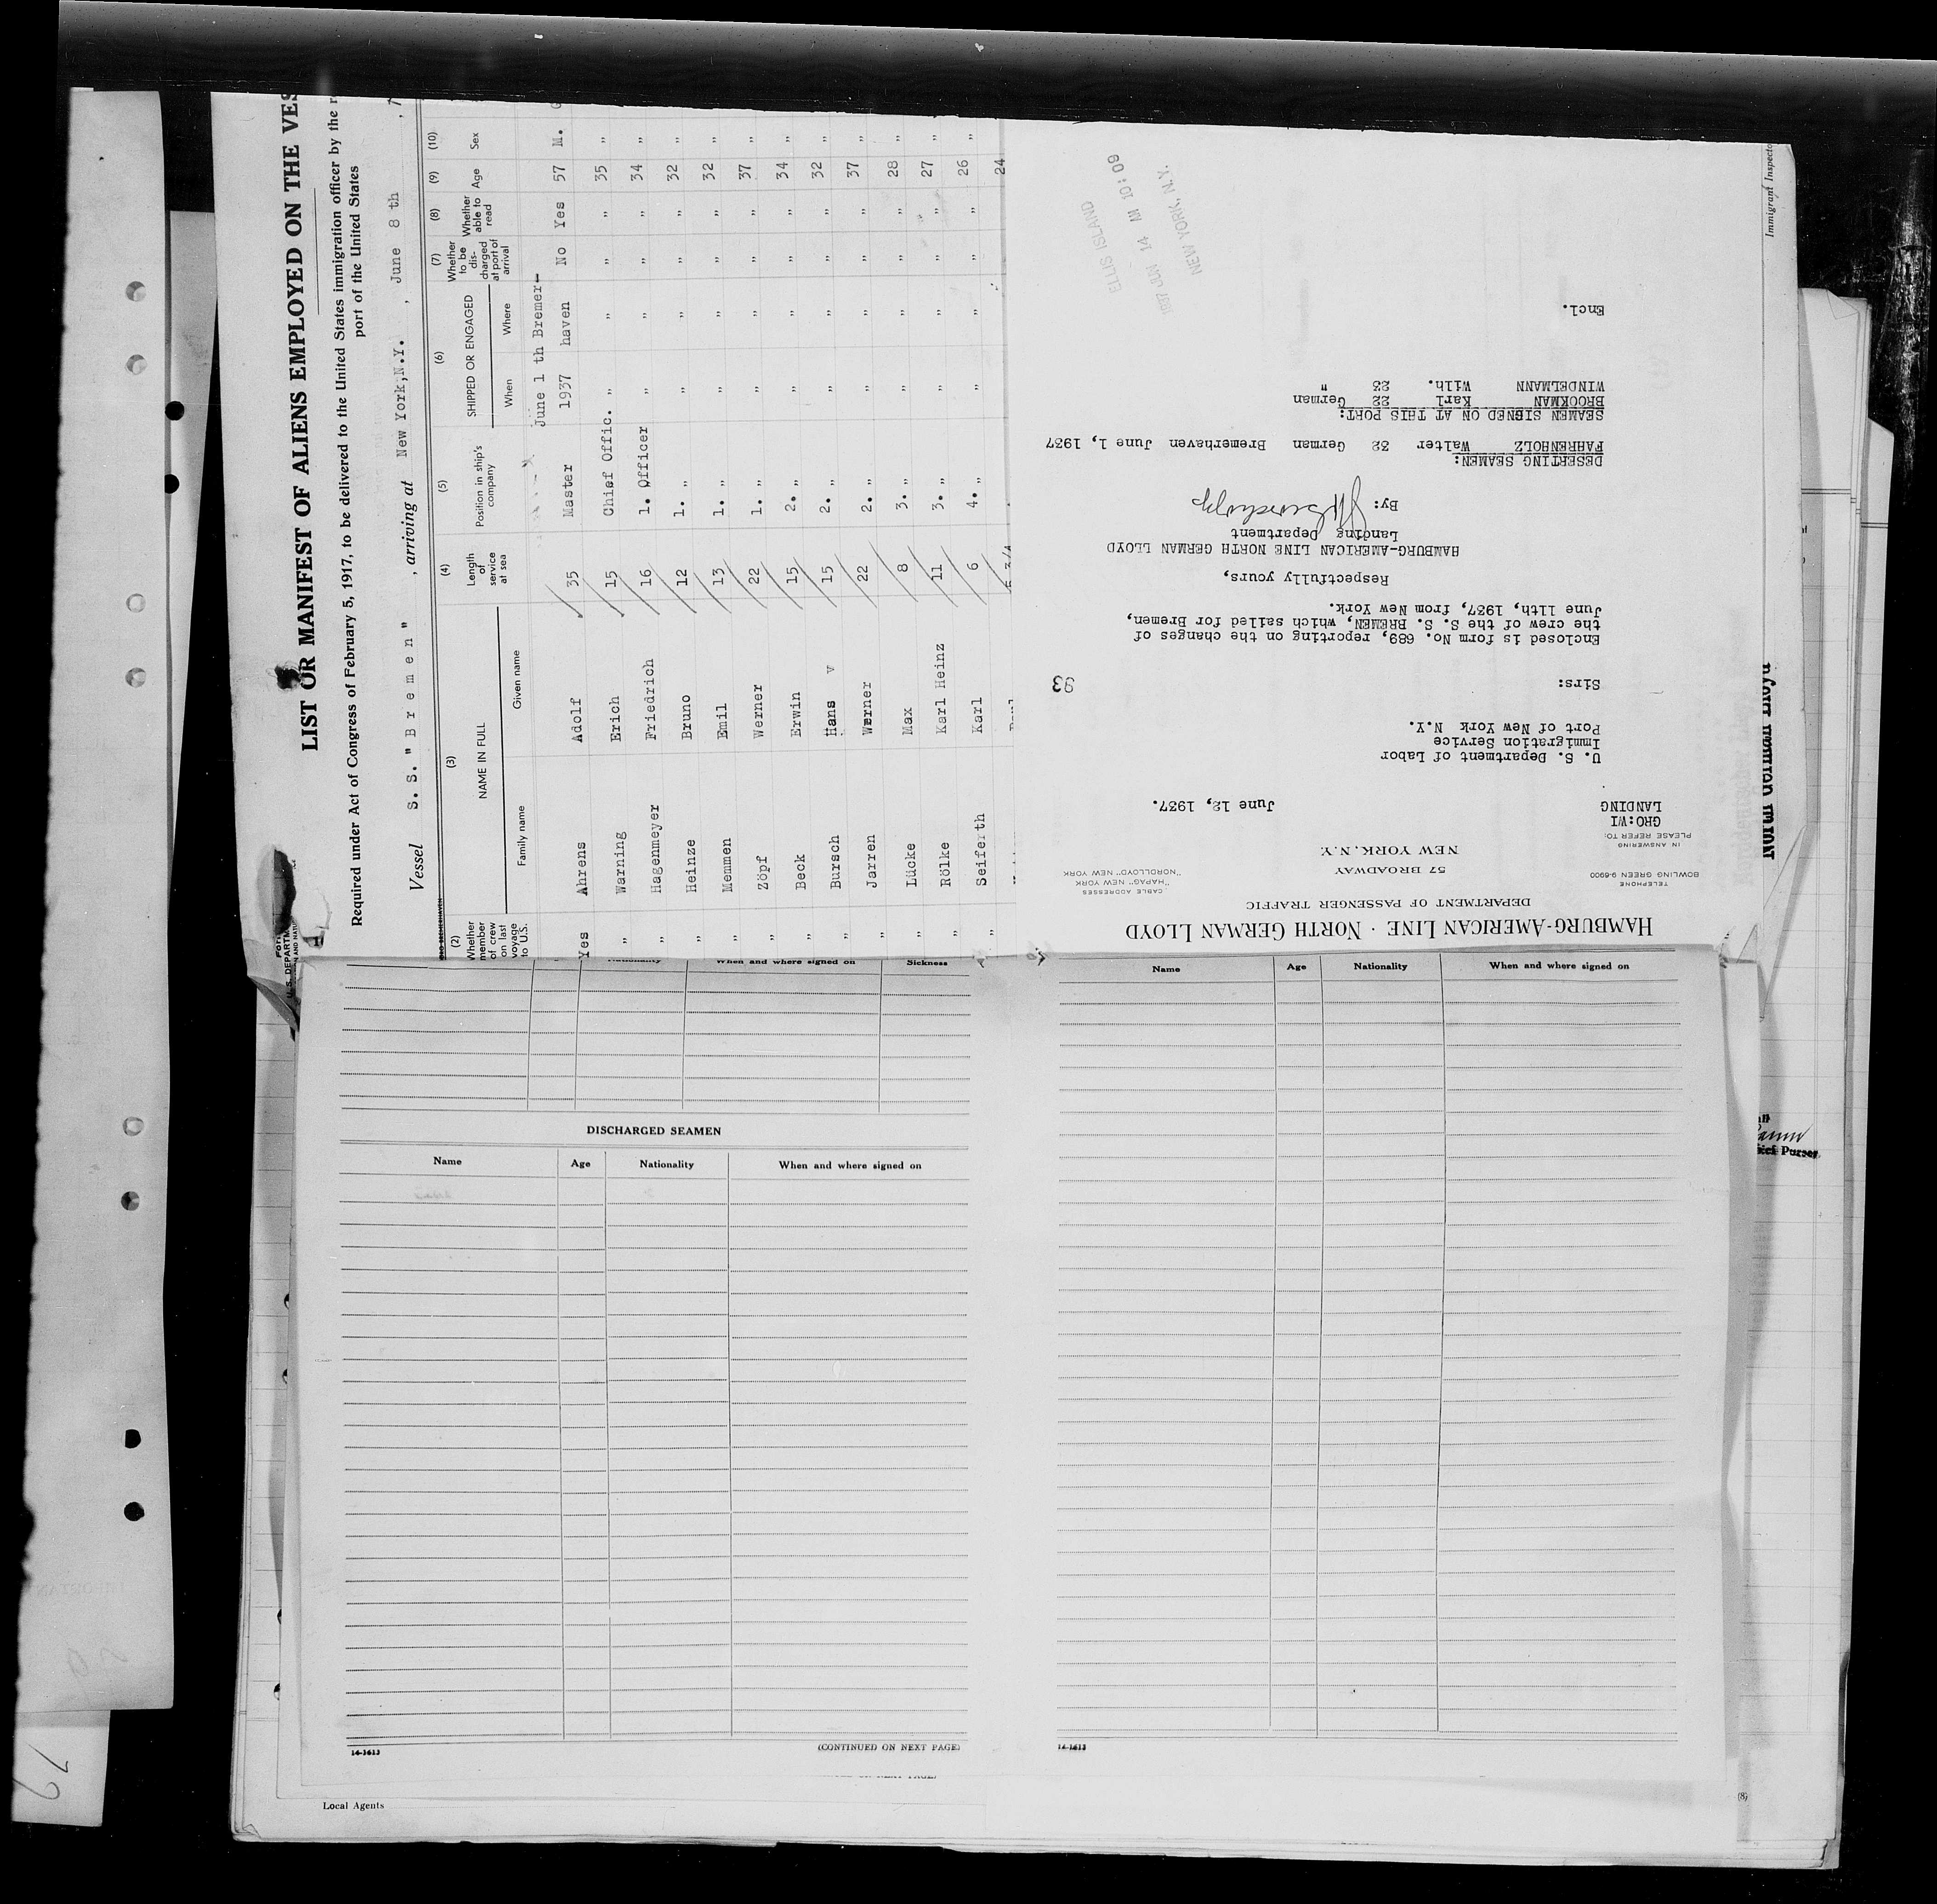 LIST OR MANIFEST OF ALIENS EMPLOYED ON THE VES
Required under Act of Congress of February 5, 1917, to be delivered to the United States immigration officer by the r
port of the United States
Vessel S.S. "Bremen" , arriving at New York,N.Y. , June 8 th
(2) (3) (4) (5) (6) (7) (8) (9) (10)
Whether member of crew on last voyage to U.S. NAME IN FULL Family name Given name Length of service at sea Position in ship's company SHIPPED OR ENGAGED When Where Whether to be dis-charged at port of arrival Whether able to read Age Sex
June 1 th Bremer-
Yes Ahrens Adolf 35 Master 1937 haven No Yes 57 M.
" Warning Erich 15 Chief Offic. " " " " 35 "
" Hagenmeyer Friedrich 16 1. Officer " " " " 34 "
" Heinze Bruno 12 1. " " " " " 32 "
" Memmen Emil 13 1. " " " " " 32 "
" Zöpf Werner 22 1. " " " " " 37 "
" Beck Erwin 15 2. " " " " " 34 "
" Bursch Hans v 15 2. " " " " " 32 "
" Jarren Werner 22 2. " " " " " 37 "
" Lücke Max 8 3. " " " " " 28 "
" Rölke Karl Heinz 11 3. " " " " " 27 "
" Seiferth Karl 6 4. " " " " " 26 "
24
HAMBURG-AMERICAN LINE · NORTH GERMAN LLOYD
DEPARTMENT OF PASSENGER TRAFFIC
57 BROADWAY
NEW YORK, N.Y.
TELEPHONE
BOWLING GREEN 9-6900
CABLE ADDRESSES
"HAPAG" NEW YORK
"NORDLLOYD" NEW YORK
IN ANSWERING
PLEASE REFER TO:
GRO:WI
LANDING
June 12, 1937.
U. S. Department of Labor
Immigration Service
Port of New York N.Y.
Sirs:
93
Enclosed is form No. 689, reporting on the changes of
the crew of the S. S. BREMEN, which sailed for Bremen,
June 11th, 1937, from New York.
Respectfully yours,
HAMBURG-AMERICAN LINE NORTH GERMAN LLOYD
Landing Department
By:
DESERTING SEAMEN:
FAHRENHOLZ Walter 32 German Bremerhaven June 1, 1937
SEAMEN SIGNED ON AT THIS PORT:
BROOKMAN Karl 22 German
WINDELMANN Wilh. 23 "
Encl.
ELLIS ISLAND
1937 JUN 14 AM 10:09
NEW YORK, N.Y.
Immigrant Inspecto
North German Lloyd
Nationality When and where signed on Sickness
DISCHARGED SEAMEN
Name Age Nationality When and where signed on
14-1613 (CONTINUED ON NEXT PAGE)
Local Agents
Name Age Nationality When and where signed on
14-1613
(8)
Chief Purser
79